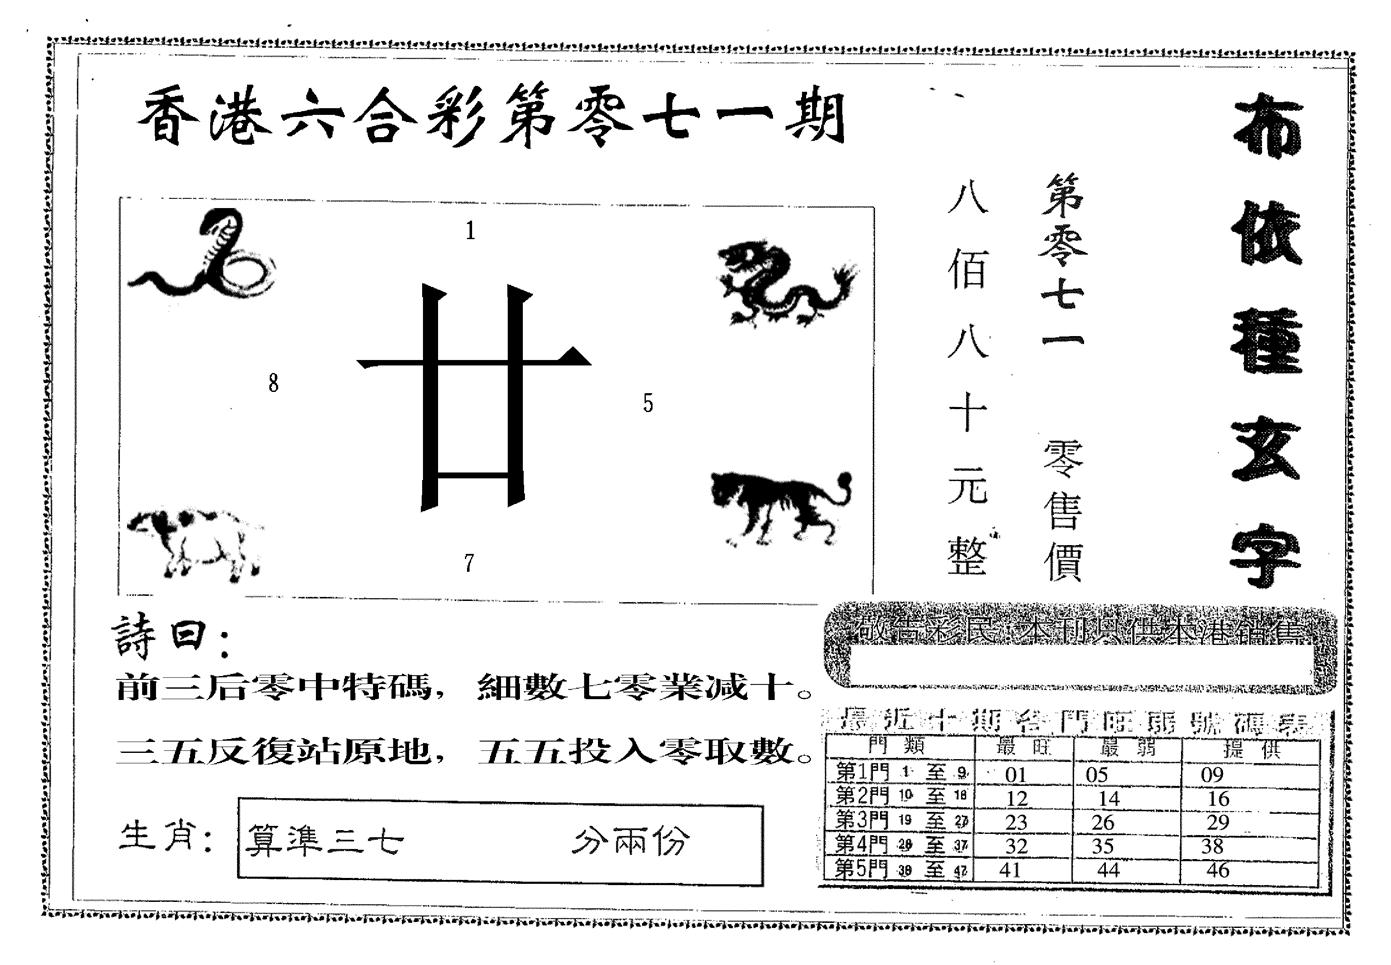 香港六合彩第零七一期
布依種玄字
第零七一 零售價
八佰八十元整
1
廿
8
5
7
詩曰：
前三后零中特碼，細數七零業减十。
三五反復站原地，五五投入零取數。
生肖： 算準三七 分兩份
敬告彩民：本刊只供本港銷售
最近十期各門旺弱號碼表
門類 最旺 最弱 提供
第1門 1 至 9 01 05 09
第2門 10 至 18 12 14 16
第3門 19 至 27 23 26 29
第4門 28 至 37 32 35 38
第5門 38 至 47 41 44 46